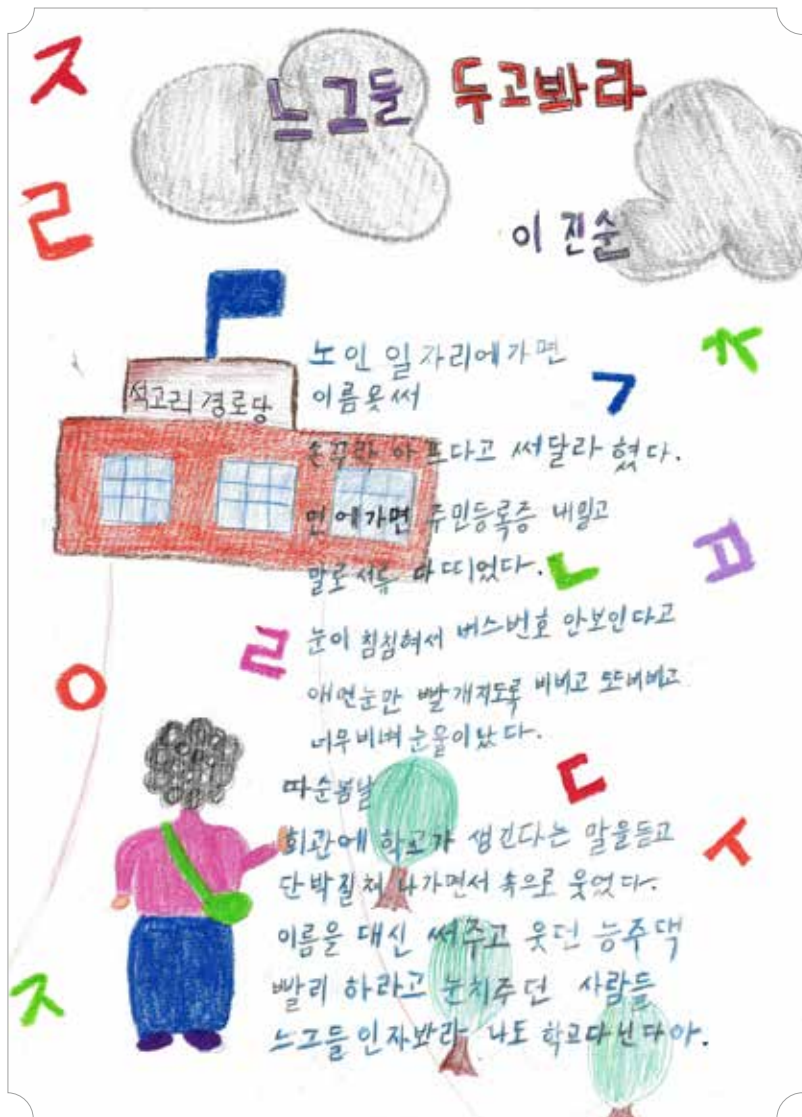 느그들 두고봐라
이진순
석고리 경로당
노인 일자리에가면
이름못써
손꾸락 아프다고 써달라 혔다.
면에가면 주민등록증 내밀고
말로서류 다 띠었다.
눈이 침침혀서 버스번호 안보인다고
애먼눈만 빨개지도록 비비고 또비비고
너무비벼 눈물이났다.
따순봄날
회관에 학교가 생긴다는 말을듣고
단박질쳐 나가면서 속으로 웃었다.
이름을 대신 써주고 웃던 능주댁
빨리 하라고 눈치주던 사람들
느그들인자봐라 나도 학교다닌다아.
ㅈ
ㄹ
ㅊ
ㄱ
ㄴ
ㅍ
ㄹ
ㅇ
ㄷ
ㅅ
ㅈ